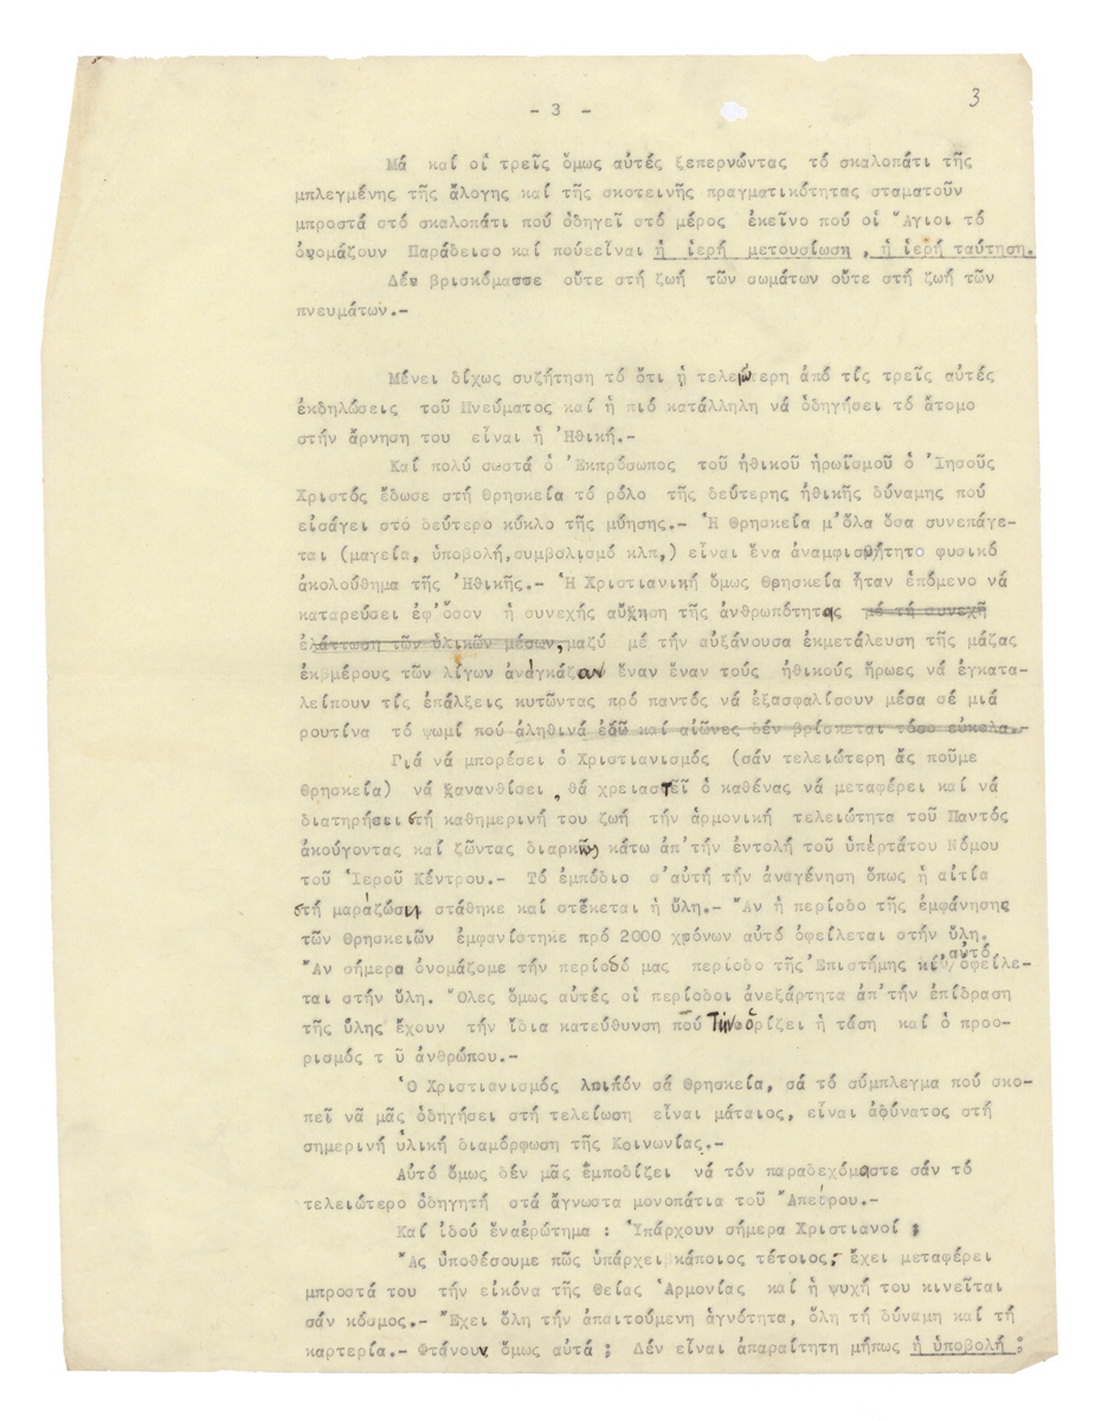 3
- 3 -
Μά καί οἱ τρεῖς ὅμως αὐτές ξεπερνώντας τό σκαλοπάτι τῆς
μπλεγμένης τῆς ἄλογης καί τῆς σκοτεινῆς πραγματικότητας σταματοῦν
μπροστά στό σκαλοπάτι πού ὁδηγεῖ στό μέρος ἐκεῖνο πού οἱ Ἅγιοι τό
ὀνομάζουν Παράδεισο καί πούεεἶναι ἡ ἱερή μετουσίωση , ἡ ἱερή ταύτηση.
Δέν βρισκόμασσε οὔτε στή ζωή τῶν σωμάτων οὔτε στή ζωή τῶν
πνευμάτων.-
Μένει δίχως συζήτηση τό ὅτι ἡ τελειώτερη ἀπό τίς τρεῖς αὐτές
ἐκδηλώσεις τοῦ Πνεύματος καί ἡ πιό κατάλληλη νά ὁδηγήσει τό ἄτομο
στήν ἄρνηση του εἶναι ἡ Ἠθική.-
Καί πολύ σωστά ὁ Ἐκπρόσωπος τοῦ ἠθικοῦ ἡρωϊσμοῦ ὁ Ἰησοῦς
Χριστός ἔδωσε στή Θρησκεία τό ρόλο τῆς δεύτερης ἠθικῆς δύναμης πού
εἰσάγει στό δεύτερο κύκλο τῆς μύησης.- Ἡ Θρησκεία μ'ὅλα ὅσα συνεπάγε-
ται (μαγεία, ὑποβολή,συμβολισμό κλπ,) εἶναι ἕνα ἀναμφισβήτητο φυσικό
ἀκολούθημα τῆς Ἠθικῆς.- Ἡ Χριστιανική ὅμως Θρησκεία ἦταν ἑπόμενο νά
καταρεύσει ἐφ'ὅσον ἡ συνεχής αὔξηση τῆς ἀνθρωπότητας μέ τή συνεχῆ
ἐλάττωση τῶν ὑλικῶν μέσων, μαζύ μέ τήν αὐξάνουσα ἐκμετάλευση τῆς μάζας
ἐκ μέρους τῶν λίγων ἀνάγκάζαν ἕναν ἕναν τούς ἠθικούς ἥρωες νά ἐγκατα-
λείπουν τίς ἐπάλξεις κυτῶντας πρό παντός νά ἐξασφαλίσουν μέσα σέ μιά
ρουτίνα τό ψωμί πού ἀληθινά ἐδῶ καί αἰῶνες δέν βρίσκεται τόσο εὔκολα.-
Γιά νά μπορέσει ὁ Χριστιανισμός (σάν τελειώτερη ἄς ποῦμε
Θρησκεία) νά ξανανθίσει , θά χρειαστεῖ ὁ καθένας νά μεταφέρει καί νά
διατηρήσει στή καθημερινή του ζωή τήν ἁρμονική τελειώτητα τοῦ Παντός
ἀκούγοντας καί ζῶντας διαρκῶς κάτω ἀπ'τήν ἐντολή τοῦ ὑπέρτάτου Νόμου
τοῦ Ἱεροῦ Κέντρου.- Τό ἐμπόδιο σ'αὐτή τήν ἀναγένηση ὅπως ἡ αἰτία
στή μαράζώση στάθηκε καί στέκεται ἡ ὕλη.- Ἄν ἡ περίοδο τῆς ἐμφάνησης
τῶν Θρησκειῶν ἐμφανίστηκε πρό 2000 χρόνων αὐτό ὀφείλεται στήν ὕλη.
Ἄν σήμερα ὀνομάζομε τήν περίοδό μας περίοδο τῆς Ἐπιστήμης κι' αὐτό ὀφείλε-
ται στήν ὕλη. Ὅλες ὅμως αὐτές οἱ περίοδοι ἀνεξάρτητα ἀπ'τήν ἐπίδραση
τῆς ὕλης ἔχουν τήν ἴδια κατεύθυνση πού τήν ὁρίζει ἡ τάση καί ὁ προο-
ρισμός τ ῦ ἀνθρώπου.-
Ὁ Χριστιανισμός λοιπόν σά Θρησκεία, σά τό σύμπλεγμα πού σκο-
πεῖ νᾶ μᾶς ὁδηγήσει στή τελείωση εἶναι μάταιος, εἶναι ἀδύνατος στή
σημερινή ὑλική διαμόρφωση τῆς Κοινωνίας.-
Αὐτό ὅμως δέν μᾶς ἐμποδίζει νά τόν παραδεχόμαστε σάν τό
τελειώτερο ὁδηγητή στά ἄγνωστα μονοπάτια τοῦ Ἀπείρου.-
Καί ἰδού ἕναἐρώτημα : Ὑπάρχουν σήμερα Χριστιανοί ;
Ἄς ὑποθέσουμε πῶς ὑπάρχει κάποιος τέτοιος, ἔχει μεταφέρει
μπροστά του τήν εἰκόνα τῆς Θείας Ἁρμονίας καί ἡ ψυχή του κινεῖται
σάν κόσμος.- Ἔχει ὅλη τήν ἀπαιτούμενη ἁγνότητα, ὅλη τή δύναμη καί τή
καρτερία.- Φτάνουν ὅμως αὐτά ; Δέν εἶναι ἀπαραίτητη μήπως ἡ ὑποβολή ;